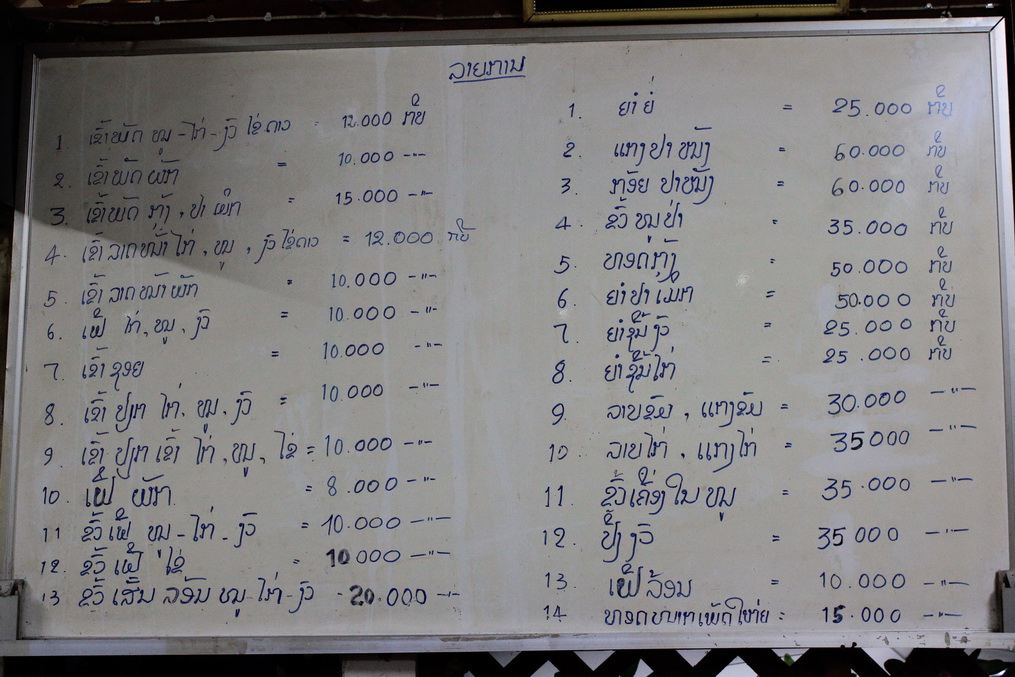 ລາຍການ
1. ເຂົ້າຜັດ ໝູ - ໄກ່ - ງົວ ໄຂ່ດາວ = 12.000 ກີບ
2. ເຂົ້າຜັດ ຜັກ = 10.000 -"-
3. ເຂົ້າຜັດ ກຸ້ງ, ປາ ເມິກ = 15.000 -"-
4. ເຂົ້າ ລາດໜ້າ ໄກ່, ໝູ, ງົວ ໄຂ່ດາວ = 12.000 ກີບ
5. ເຂົ້າ ລາດໜ້າ ຜັກ = 10.000 -"-
6. ເຝີ ໄກ່, ໝູ, ງົວ = 10.000 -"-
7. ເຂົ້າ ຊອຍ = 10.000 -"-
8. ເຂົ້າ ປຽກ ໄກ່, ໝູ, ງົວ = 10.000 -"-
9. ເຂົ້າ ປຽກ ເຂົ້າ ໄກ່, ໝູ, ໄຂ່ = 10.000 -"-
10. ເຝີ ຜັກ = 8.000 -"-
11 ຂົ້ວ ເຝີ ໝູ - ໄກ່ - ງົວ = 10.000 -"-
12. ຂົ້ວ ເຝີ ໄຂ່ = 10000 -"-
13 ຂົ້ວ ເສັ້ນ ລ້ອນ ໝູ - ໄກ່ - ງົວ - 20.000 -"-
1. ຍຳ ຍໍ່ = 25.000 ກີບ
2. ແກງ ປາ ໜັງ = 60.000 ກີບ
3. ກ້ອຍ ປາໜັງ = 60.000 ກີບ
4. ຂົ້ວ ໝູປ່າ = 35.000 ກີບ
5. ທອດກຸ້ງ = 50.000 ກີບ
6. ຍຳປາເມິກ = 50.000 ກີບ
7. ຍຳຊີ້ນງົວ = 25.000 ກີບ
8. ຍຳຊີ້ນໄກ່ = 25.000 ກີບ
9. ລາບ, ແກງ = 30.000 -"-
10 ລາບໄກ່, ແກງໄກ່ = 35000 -"-
11 ຂົ້ວເຄື່ອງ ໃນ ໝູ = 35.000 -"-
12. ປີ້ງ ງົວ = 35000 -"-
13. ເຝີ ລ້ອນ = 10.000 -"-
14 ທອດ = 15.000 -"-